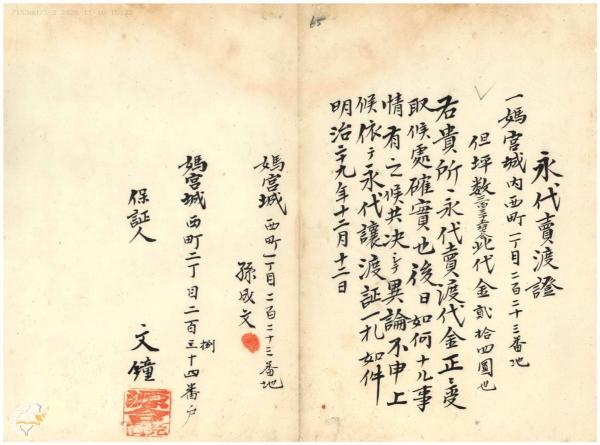 永代賣渡證
一媽宮城内西町一丁目二百二十三番地
但坪數 此代金貳拾四圓也
右貴所ヘ永代賣渡代金正ニ受
取候處確實也後日如何ナル事
情有之候共決シテ異論不申上
候依テ永代讓渡証一札如件
明治二十九年十二月十二日
媽宮城西町一丁目二百二十三番地
孫成文
媽宮城西町二丁目二百三十四番戶
保証人
文鐘
65